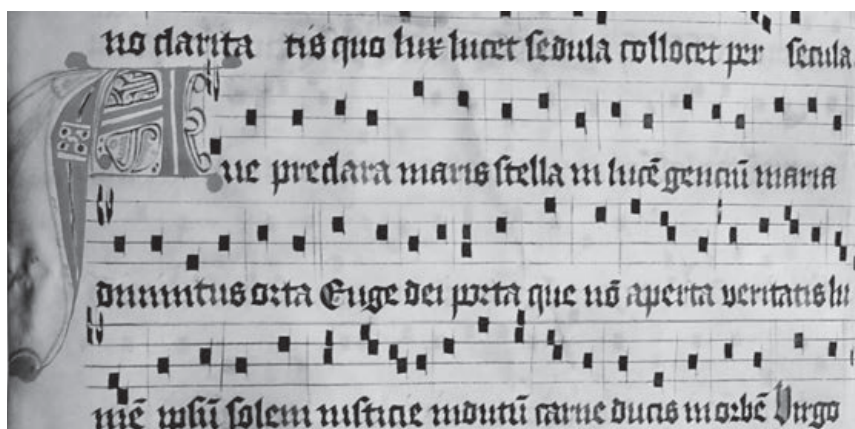 no clarita tis quo lux lucet sedula collocet per secula
Aue preclara maris stella in lucē genciū maria
diuinitus orta Euge dei porta que nō aperta veritatis lu
mē ipsū solem iusticie indutū carne ducis in orbē Virgo